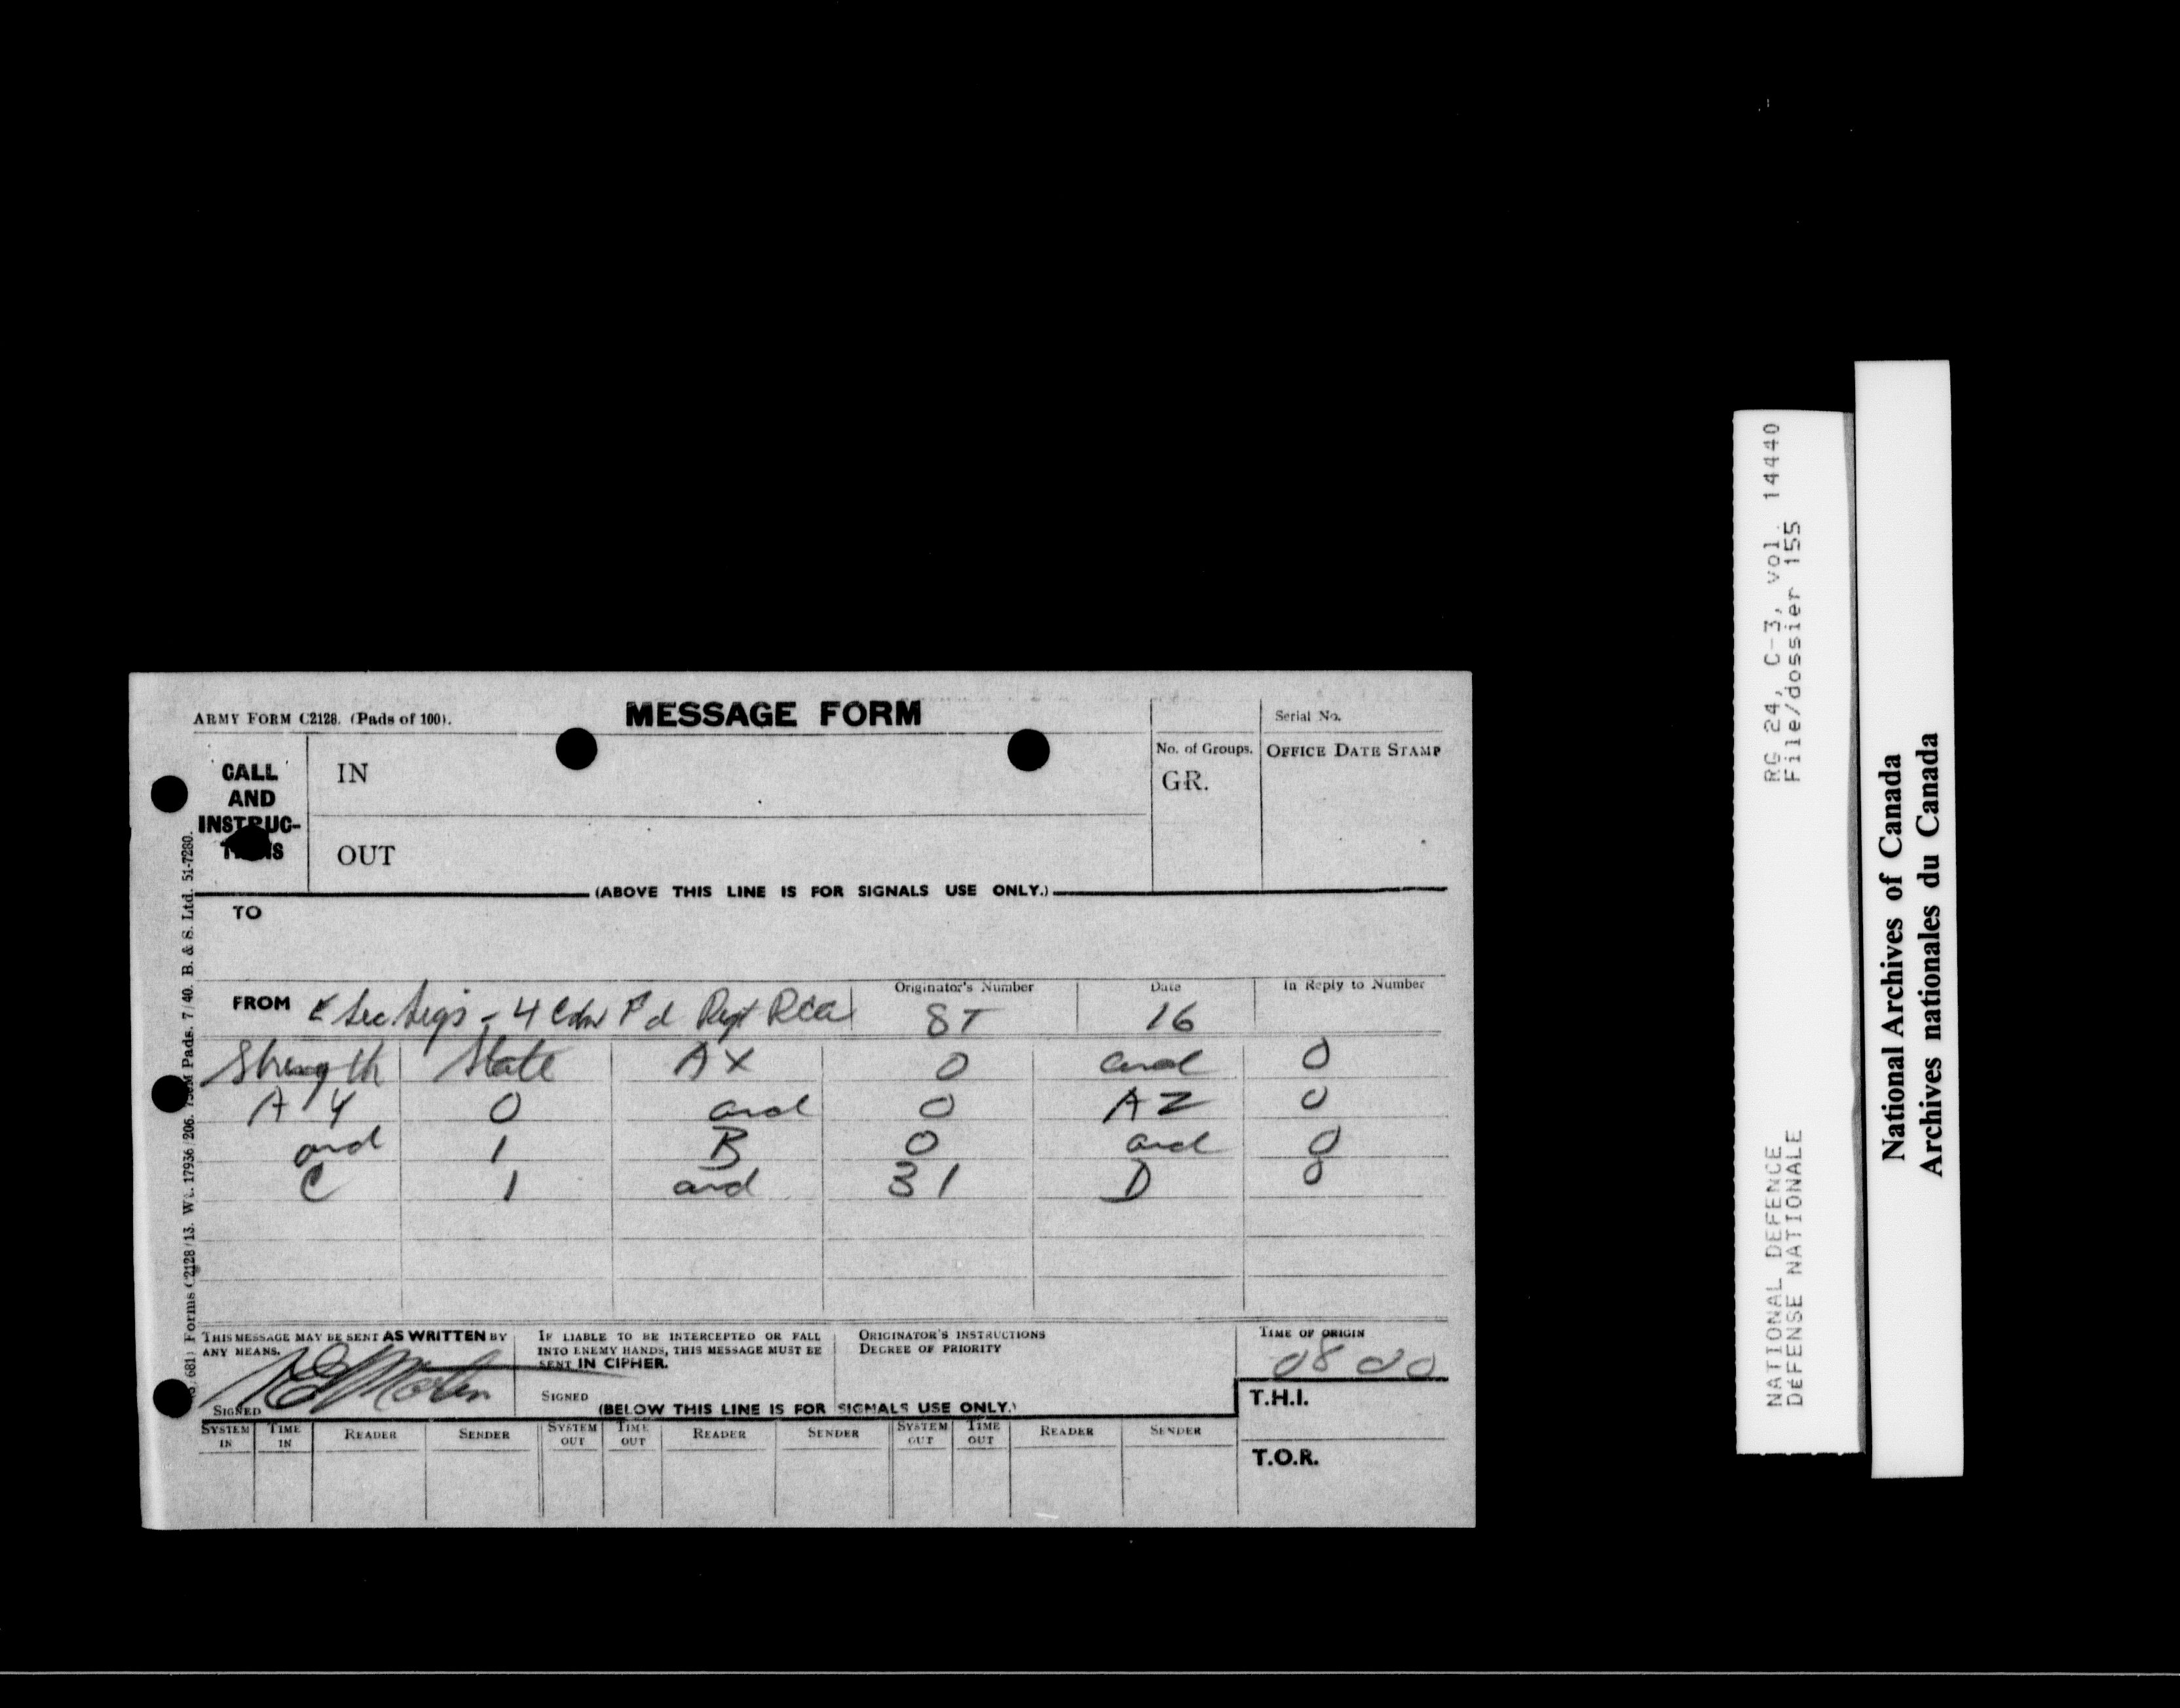 ARMY FORM C2128. (Pads of 100).
MESSAGE FORM
Serial No.
CALL AND INSTRUC-
IN
No. of Groups.
GR.
OFFICE DATE STAMP
OUT
(ABOVE THIS LINE IS FOR SIGNALS USE ONLY.)
TO
FROM E Sec Sigs - 4 Cdn Fd Regt RCA
Originator's Number
8T
Date
16
In Reply to Number
Strength State AX 0 and 0
AY 0 and 0 AZ 0
and 1 B 0 and 0
C 1 and 31 D 0
THIS MESSAGE MAY BE SENT AS WRITTEN BY
ANY MEANS.
SIGNED
IF LIABLE TO BE INTERCEPTED OR FALL
INTO ENEMY HANDS, THIS MESSAGE MUST BE
SENT IN CIPHER.
SIGNED
ORIGINATOR'S INSTRUCTIONS
DEGREE OF PRIORITY
TIME OF ORIGIN
0800
T.H.I.
(BELOW THIS LINE IS FOR SIGNALS USE ONLY.)
SYSTEM IN TIME IN READER SENDER SYSTEM OUT TIME OUT READER SENDER SYSTEM OUT TIME OUT READER SENDER
T.O.R.
Forms C2128/13. Wt. 17936/206. Pads. 7/40. B. & S. Ltd. 51-7280.
NATIONAL DEFENCE RG 24, C-3, vol. 14440
DÉFENSE NATIONALE File/dossier 155
National Archives of Canada
Archives nationales du Canada